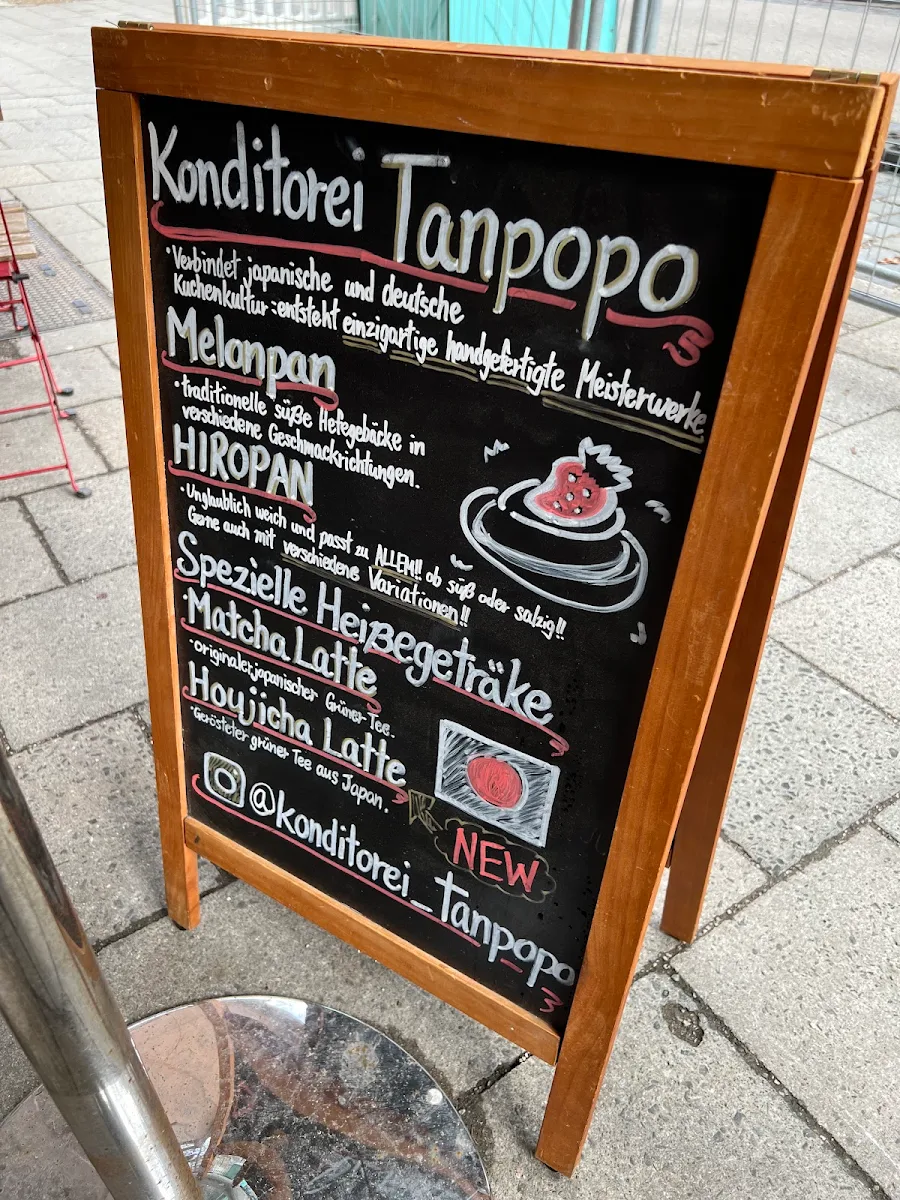 Konditorei Tanpopo
·Verbindet japanische und deutsche
Kuchenkultur :entsteht einzigartige handgefertigte Meisterwerke
Melonpan
·traditionelle süße Hefegebäcke in
verschiedene Geschmackrichtungen.
HIROPAN
·Unglaublich weich und passt zu ALLEM!! ob süß oder salzig!!
Gerne auch mit verschiedene Variationen!!
Spezielle Heißegeträke
·Matcha Latte
·originaler japanischer Grüner-Tee.
Houjicha Latte
·Gerösteter grüner Tee aus Japan.
NEW
@konditorei_tanpopo